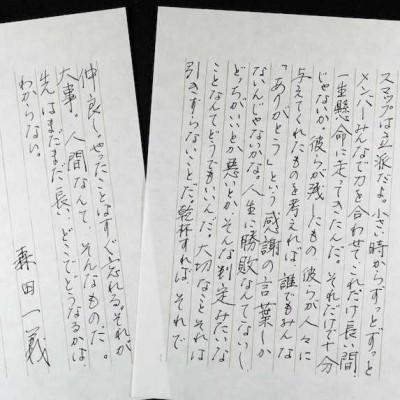 スマップは立派だよ。小さい時からずっとずっと
メンバーみんなで力を合わせて、これだけ長い間
一生懸命に走ってきたんだ。それだけで十分
じゃないか 彼らが残したもの 彼らが人々に
与えてくれたものを考えれば 誰でもみんな
「ありがとう」という感謝の言葉しか
ないんじゃないかな。人生に勝敗なんてないし、
どっちがいいとか悪いとかそんな判定みたいな
ことなんてどうでもいいんだ。大切なことそれは
引きずらないことだ。乾杯すれば、それで
仲良し。やったことはすぐ忘れる。それが
大事。人間なんて、そんなものだ。
先はまだまだ長い、どこでどうなるかは
わからない。
森田一義